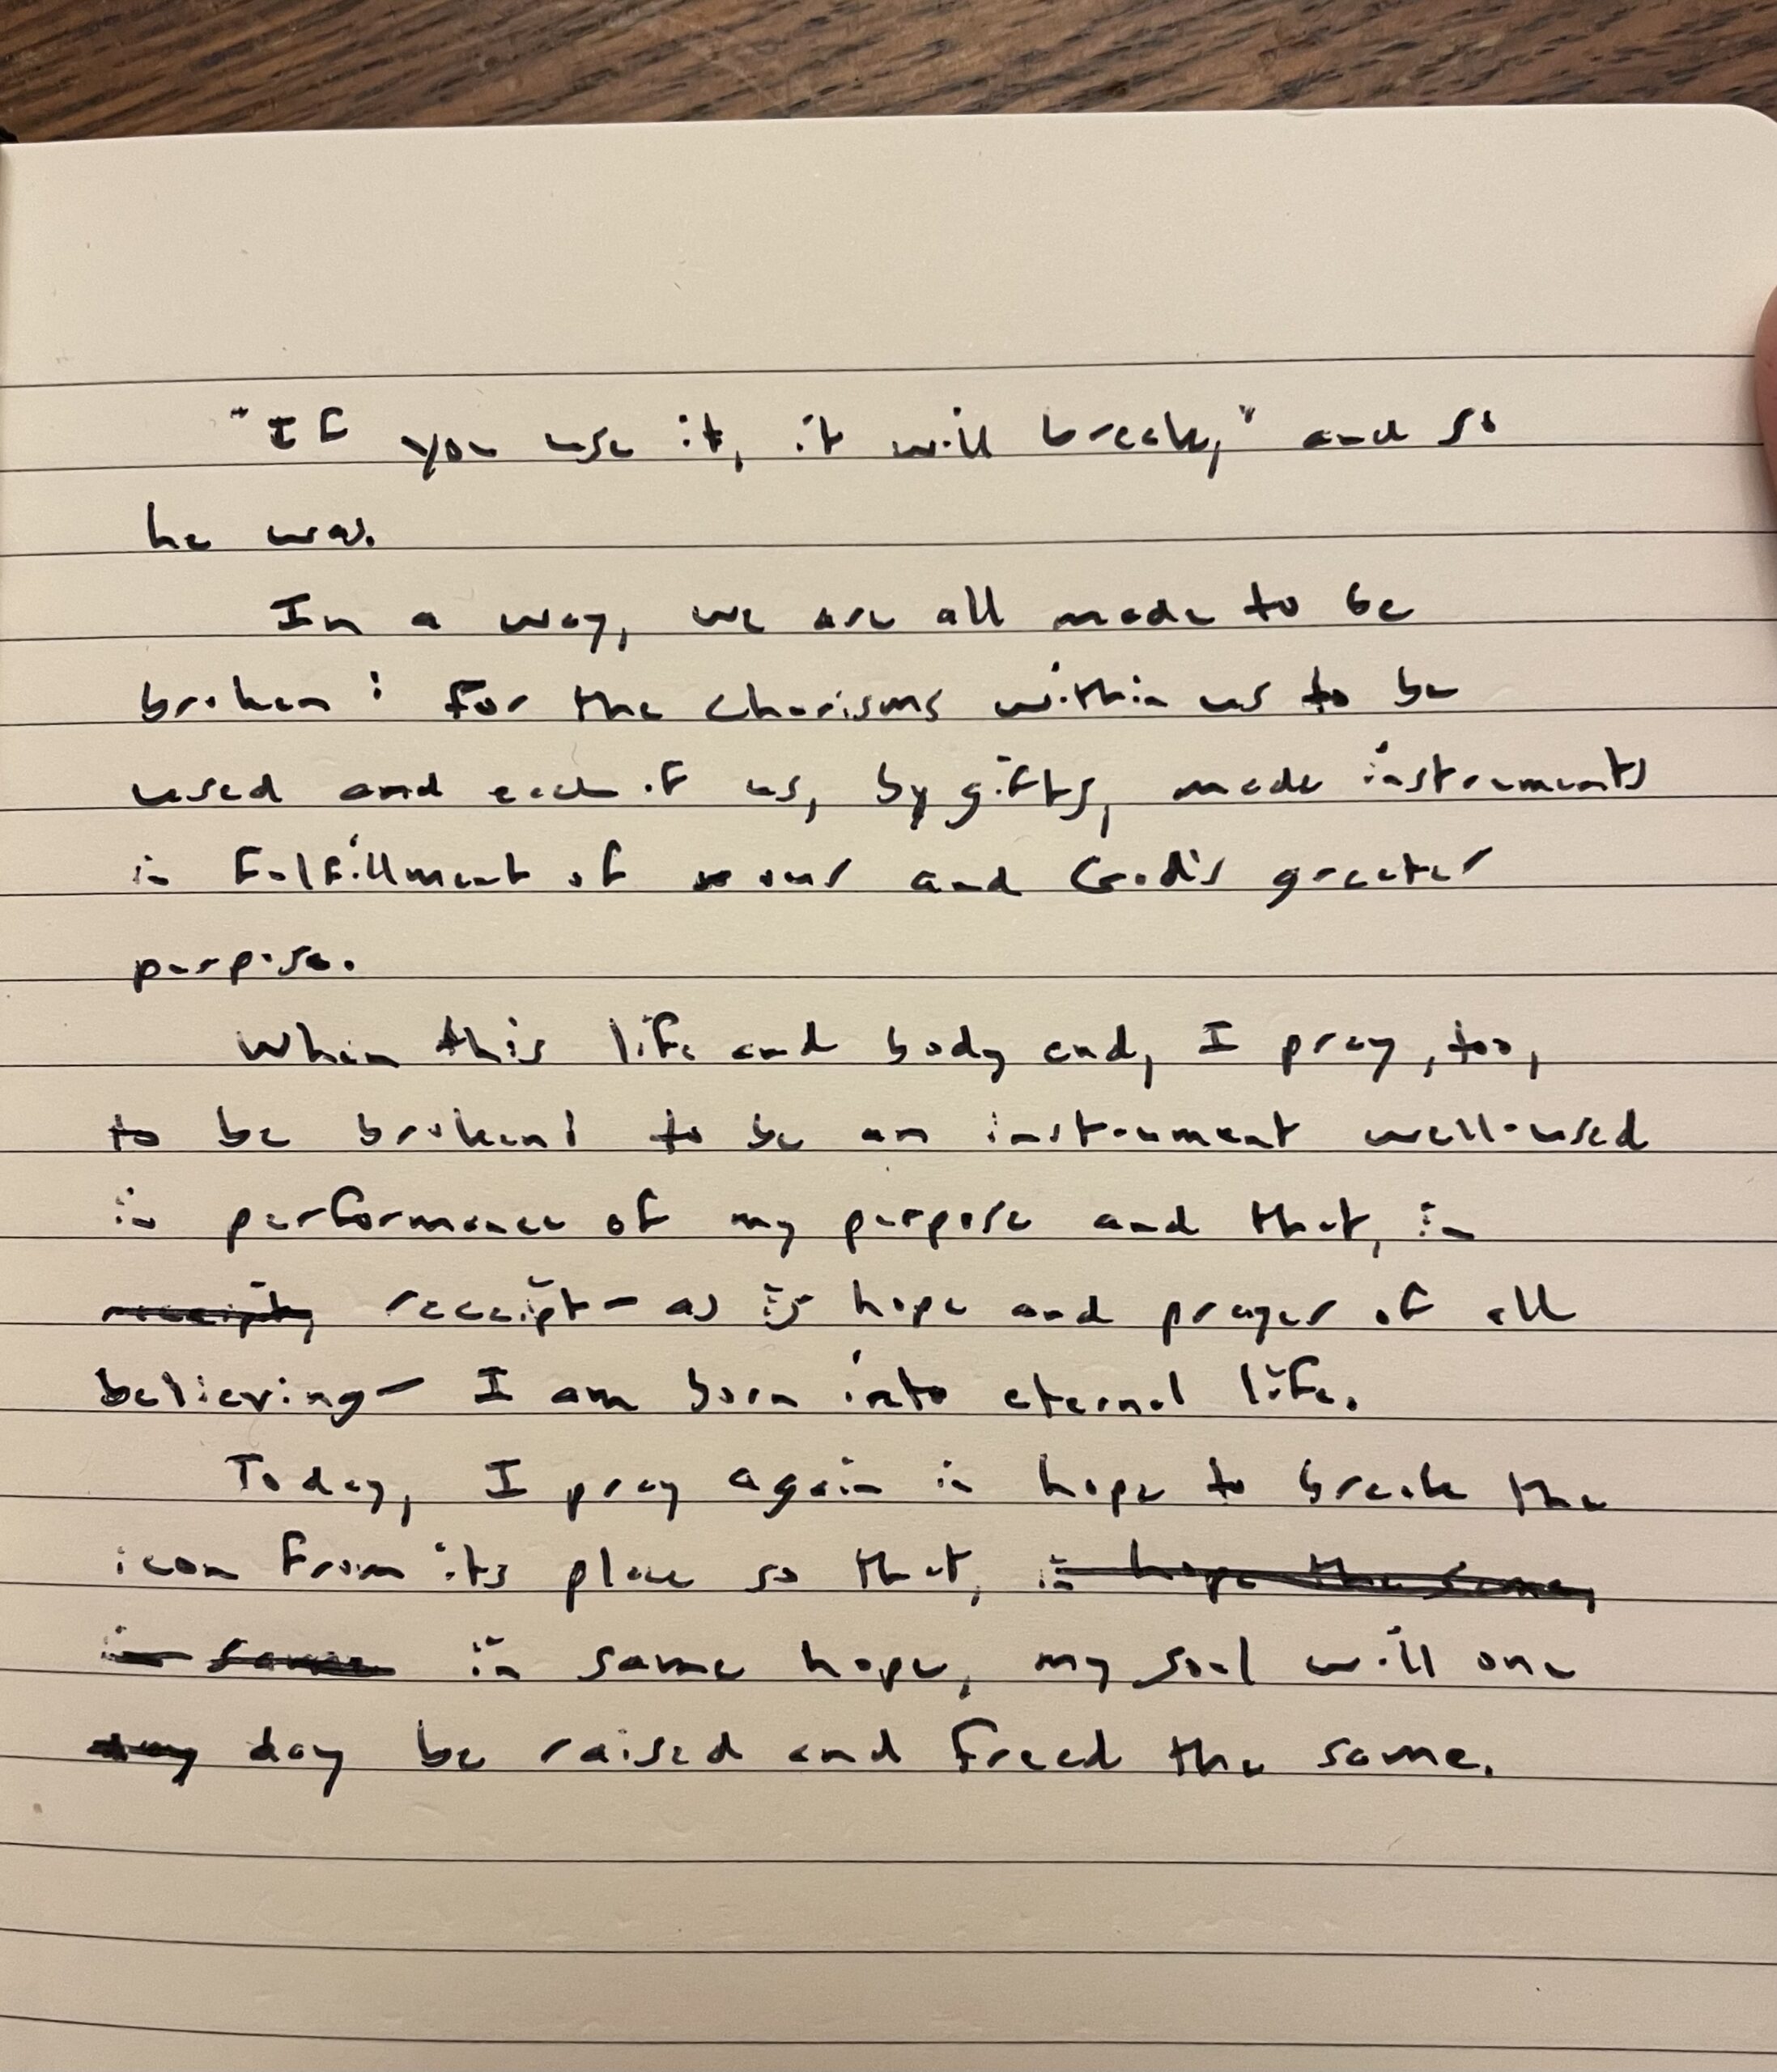 "If you use it, it will break," and so
he was.
In a way, we are all made to be
broken: for the charisms within us to be
used and each of us, by gifts, made instruments
in fulfillment of our and God's greater
purpose.
When this life and body end, I pray, too,
to be broken; to be an instrument well-used
in performance of my purpose and that, in
receipt, receipt - as is hope and prayer of all
believing - I am born into eternal life.
Today, I pray again in hope to break the
icon from its place so that, in hope the same,
in same in same hope, my soul will one
day be raised and freed the same.